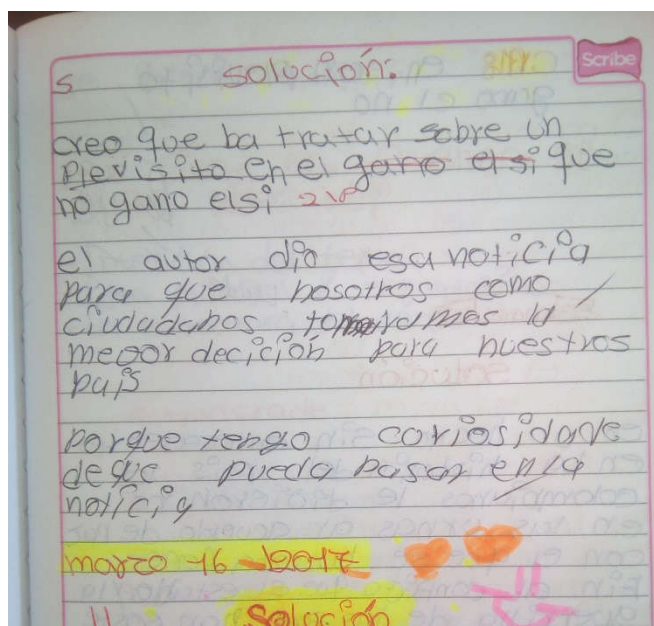 Scribe
s solución:
creo que ba tratar sobre un
plevisito en el gano el si que
no gano elsi
el autor dio esa noticia
para que nosotros como
ciudadanos tomaramos la
megor decición para nuestros
pais
porque tengo coriosidade
de que pueda pasar en la
noticia
marzo 16 - 2017
Solución